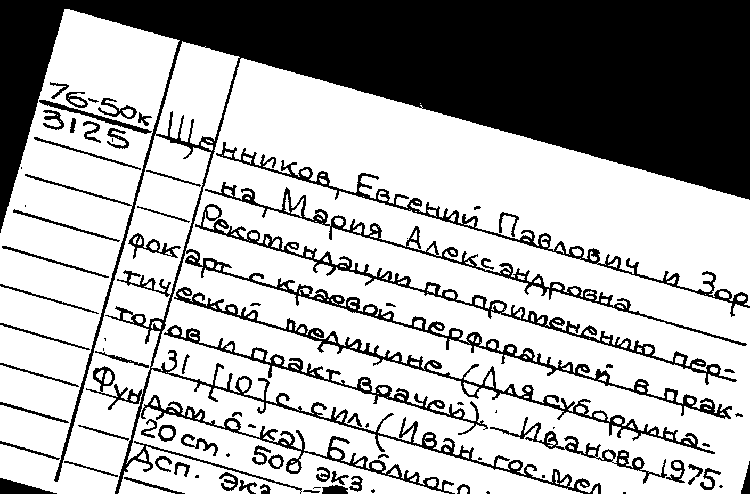 76-50к
3125
Щенников, Евгений Павлович и Зор
на, Мария Александровна.
Рекомендации по применению пер-
фокарт с краевой перфорацией в прак-
тической медицине. (Для субордина-
торов и практ. врачей). Иваново, 1975.
31, [10] с. с ил. (Иван. гос. мед.
Фундам. б-ка) Библиогр.
20 cm. 500 экз.
экз